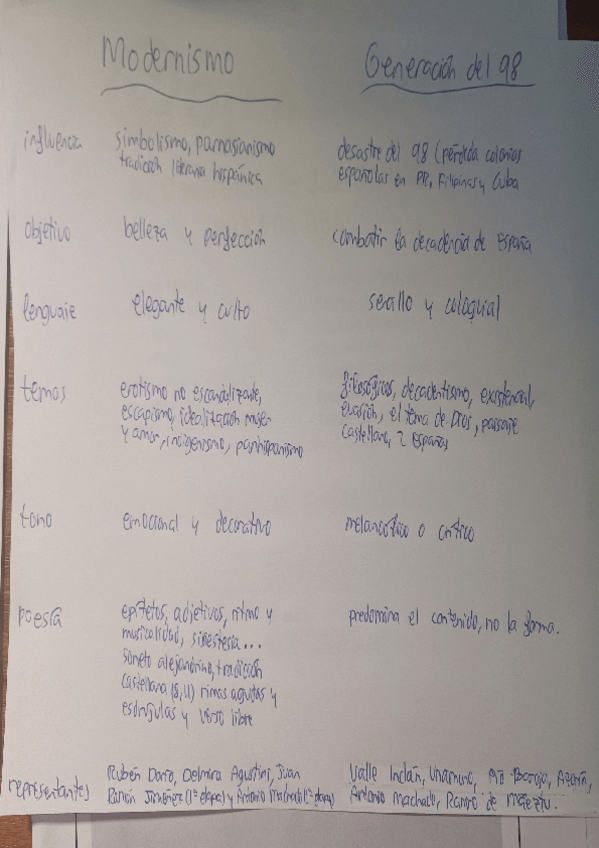 Modernismo
Generación del 98
influenza
simbolismo, parnasianismo
tradición literaria hispánica
desastre del 98 (pérdida colonias
españolas en PR, Filipinas y Cuba
objetivo
belleza y perfección
combatir la decadencia de España
lenguaje
elegante y culto
sencillo y coloquial
temas
erotismo no escandalizante,
escapismo, idealización mujer
y amor, indigenismo, panhispanismo
filosóficos, decadentismo, existencial,
evasión, el tema de Dios, paisaje
castellano, 2 Españas
tono
emocional y decorativo
melancólico o crítico
poesía
epítetos, adjetivos, ritmo y
musicalidad, sinestesia...
soneto alejandrino, tradición
castellana (8, 11) rimas agudas y
esdrújulas y verso libre
predomina el contenido, no la forma.
representantes
Rubén Darío, Delmira Agustini, Juan
Ramón Jiménez (1ª etapa) y Antonio Machado (1ª etapa)
Valle Inclán, Unamuno, Pío Baroja, Azorín,
Antonio Machado, Ramiro de Maeztu.